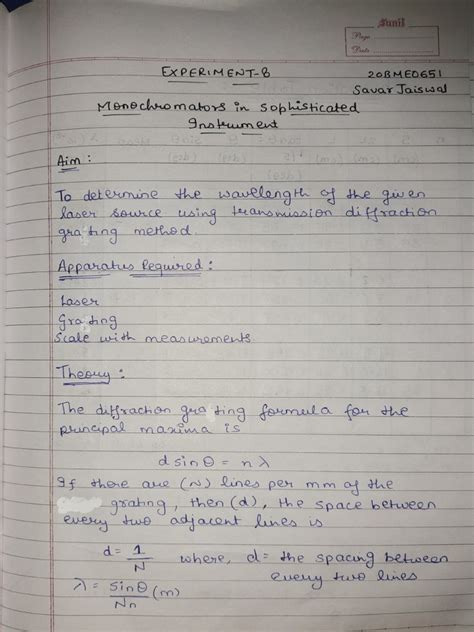 Sunil
Page
Date
EXPERIMENT-8 20BME0651
Savar Jaiswal
Monochromators in Sophisticated
Instrument
Aim :
To determine the wavelength of the given
laser source using transmission diffraction
grating method.
Apparatus Required :
Laser
Grating
Scale with measurements.
Theory :
The diffraction grating formula for the
principal maxima is
d sinθ = n λ
If there are (N) lines per mm of the
grating, then (d), the space between
every two adjacent lines is
d = 1/N where, d = the spacing between
every two lines
λ = sinθ/Nn (m)